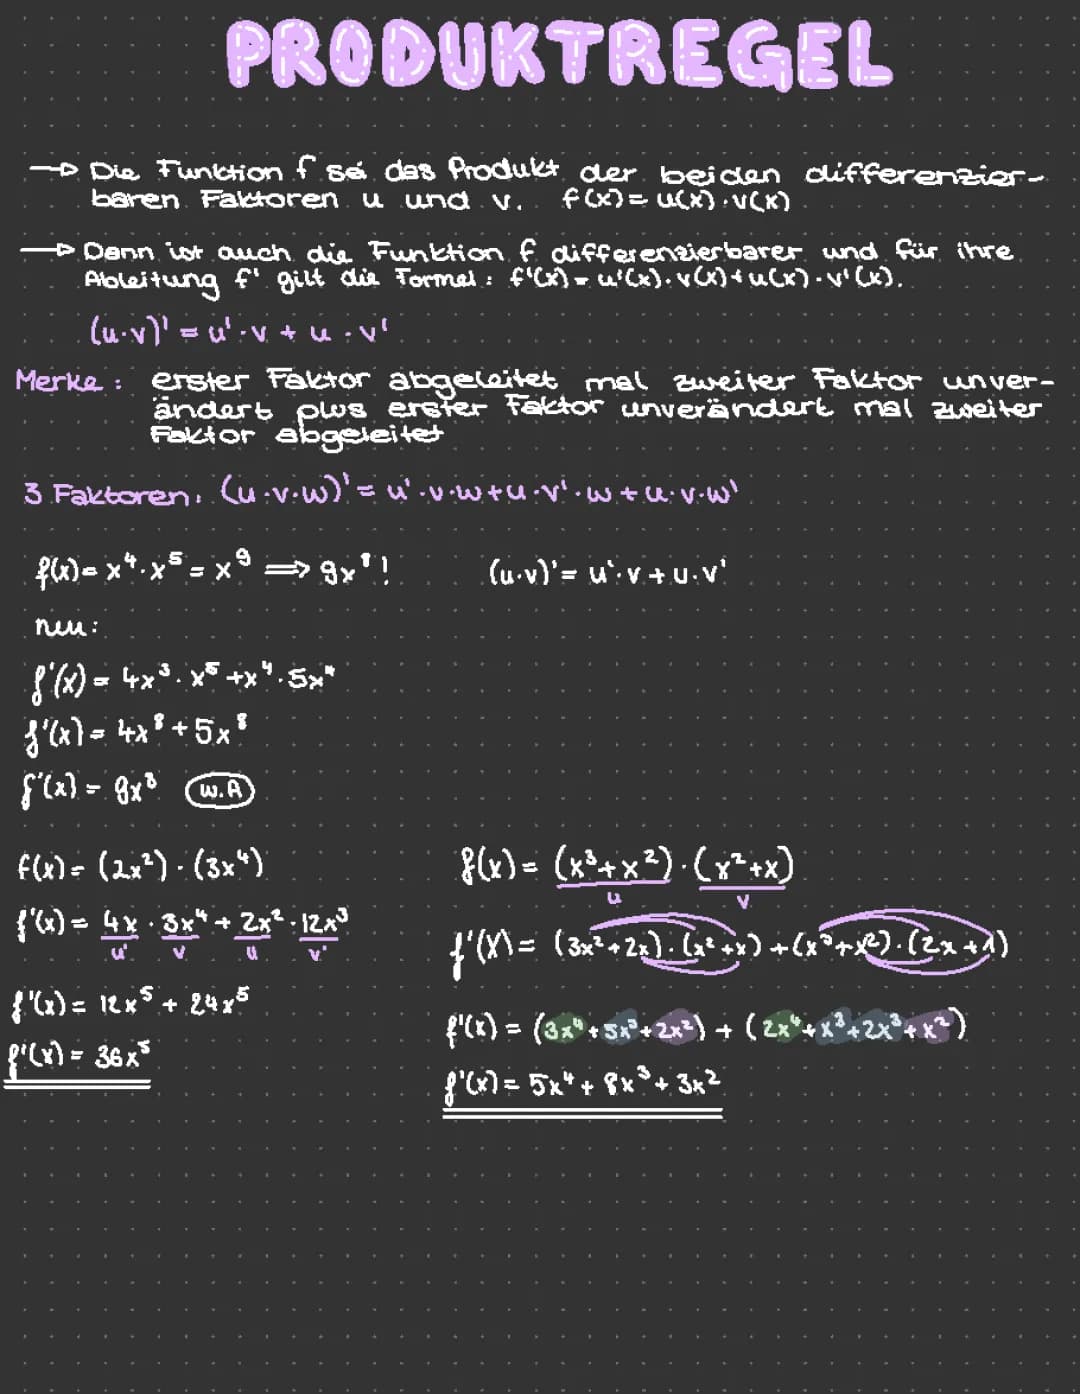 PRODUKTREGEL
→ Die Funktion f sei das Produkt der beiden differenzier-
baren Faktoren u und v. f(x)= u(x)·v(x)
→ Dann ist auch die Funktion f differenzierbarer und für ihre
Ableitung f' gilt die Formel: f'(x)= u'(x)·v(x)+u(x)·v'(x).
(u·v)' = u'·v + u·v'
Merke: erster Faktor abgeleitet mal zweiter Faktor unver-
ändert plus erster Faktor unverändert mal zweiter
Faktor abgeleitet
3 Faktoren: (u·v·w)' = u'·v·w+u·v'·w+u·v·w'
f(x)= x⁴·x⁵ = x⁹ ⟹ 9x⁸! (u·v)'= u'·v+u·v'
neu:
f'(x) = 4x³·x⁵+x⁴·5x⁴
f'(x) = 4x⁸+5x⁸
f'(x) = 9x⁸ W.A
f(x)= (2x²)·(3x⁴)
f'(x)= 4x·3x⁴+2x²·12x³
u' v u v'
f'(x)= 12x⁵+24x⁵
f'(x)= 36x⁵
f(x)= (x³+x²)·(x²+x)
u v
f'(x)= (3x²+2x)·(x²+x)+(x³+x²)·(2x+1)
f'(x) = (3x⁴+5x³+2x²)+(2x⁴+x³+2x³+x²)
f'(x)= 5x⁴+8x³+3x²